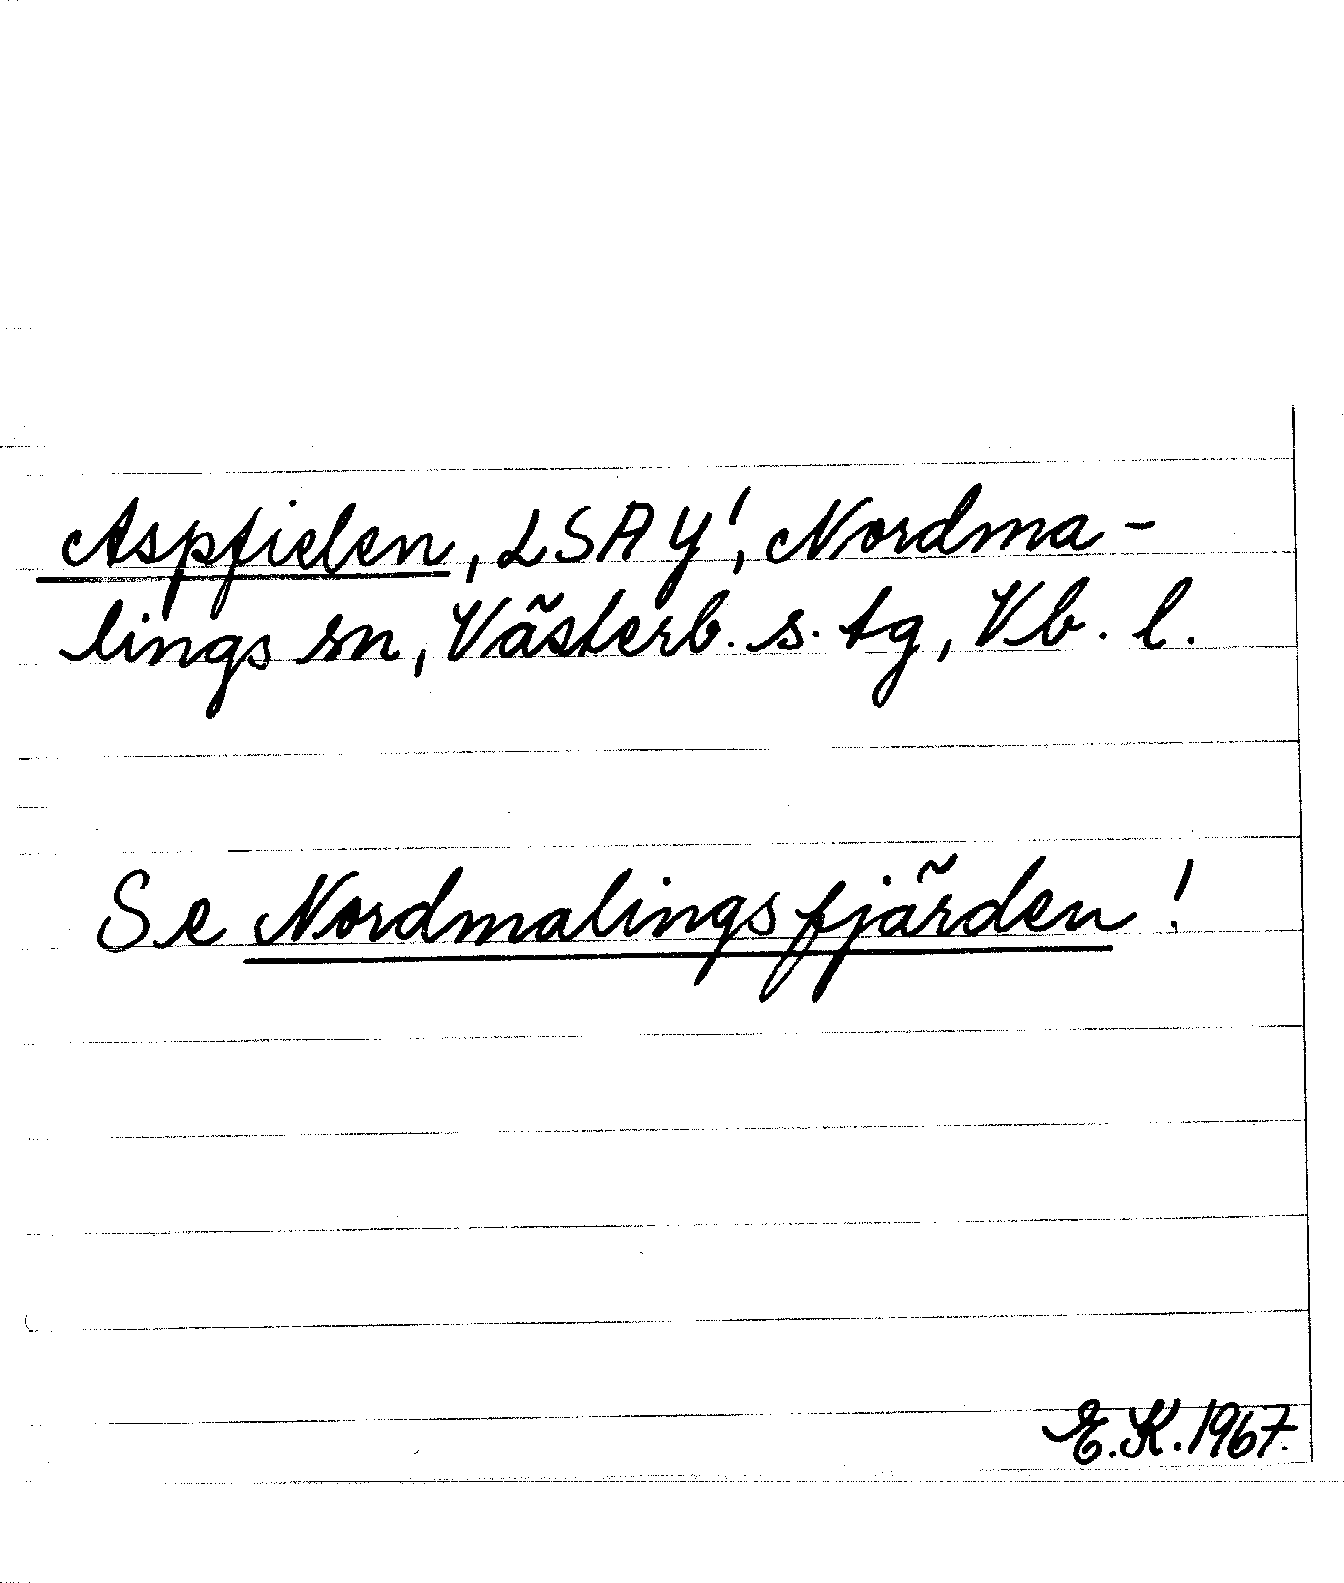 Aspfielen, LSA Y', Nordma-
lings sn, Västerb. s. tg, Vb. l.
Se Nordmalingsfjärden!
E.K. 1967.